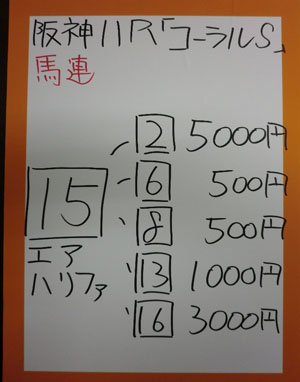 阪神11R「コーラルS」
馬連
15
エア
ハリファ
2 5000円
6 500円
8 500円
13 1000円
16 3000円